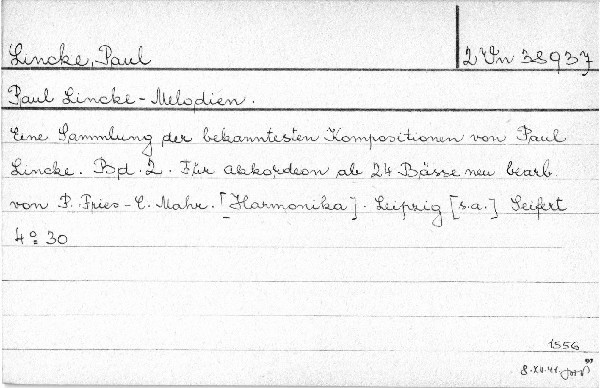 Lincke, Paul
2 Vn 38937
Paul Lincke-Melodien.
Eine Sammlung der bekanntesten Kompositionen von Paul
Lincke. Bd. 2. Für Akkordeon ab 24 Bässe neu bearb.
von P. Fries-C. Mahr. [Harmonika]. Leipzig [s.a.] Seifert
4° 30
1556
8.XII.41.